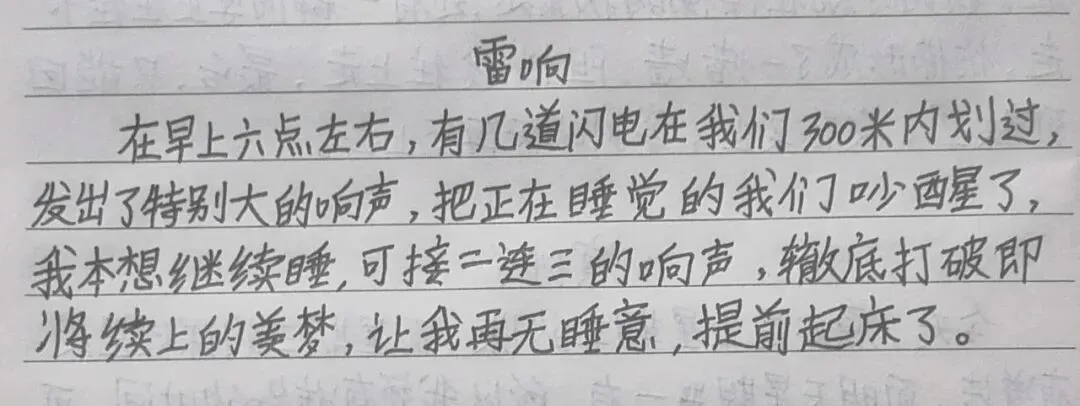 雷响
在早上六点左右，有几道闪电在我们300米内划过，
发出了特别大的响声，把正在睡觉的我们吵醒了，
我本想继续睡，可接二连三的响声，辙底打破即
将续上的美梦，让我再无睡意，提前起床了。